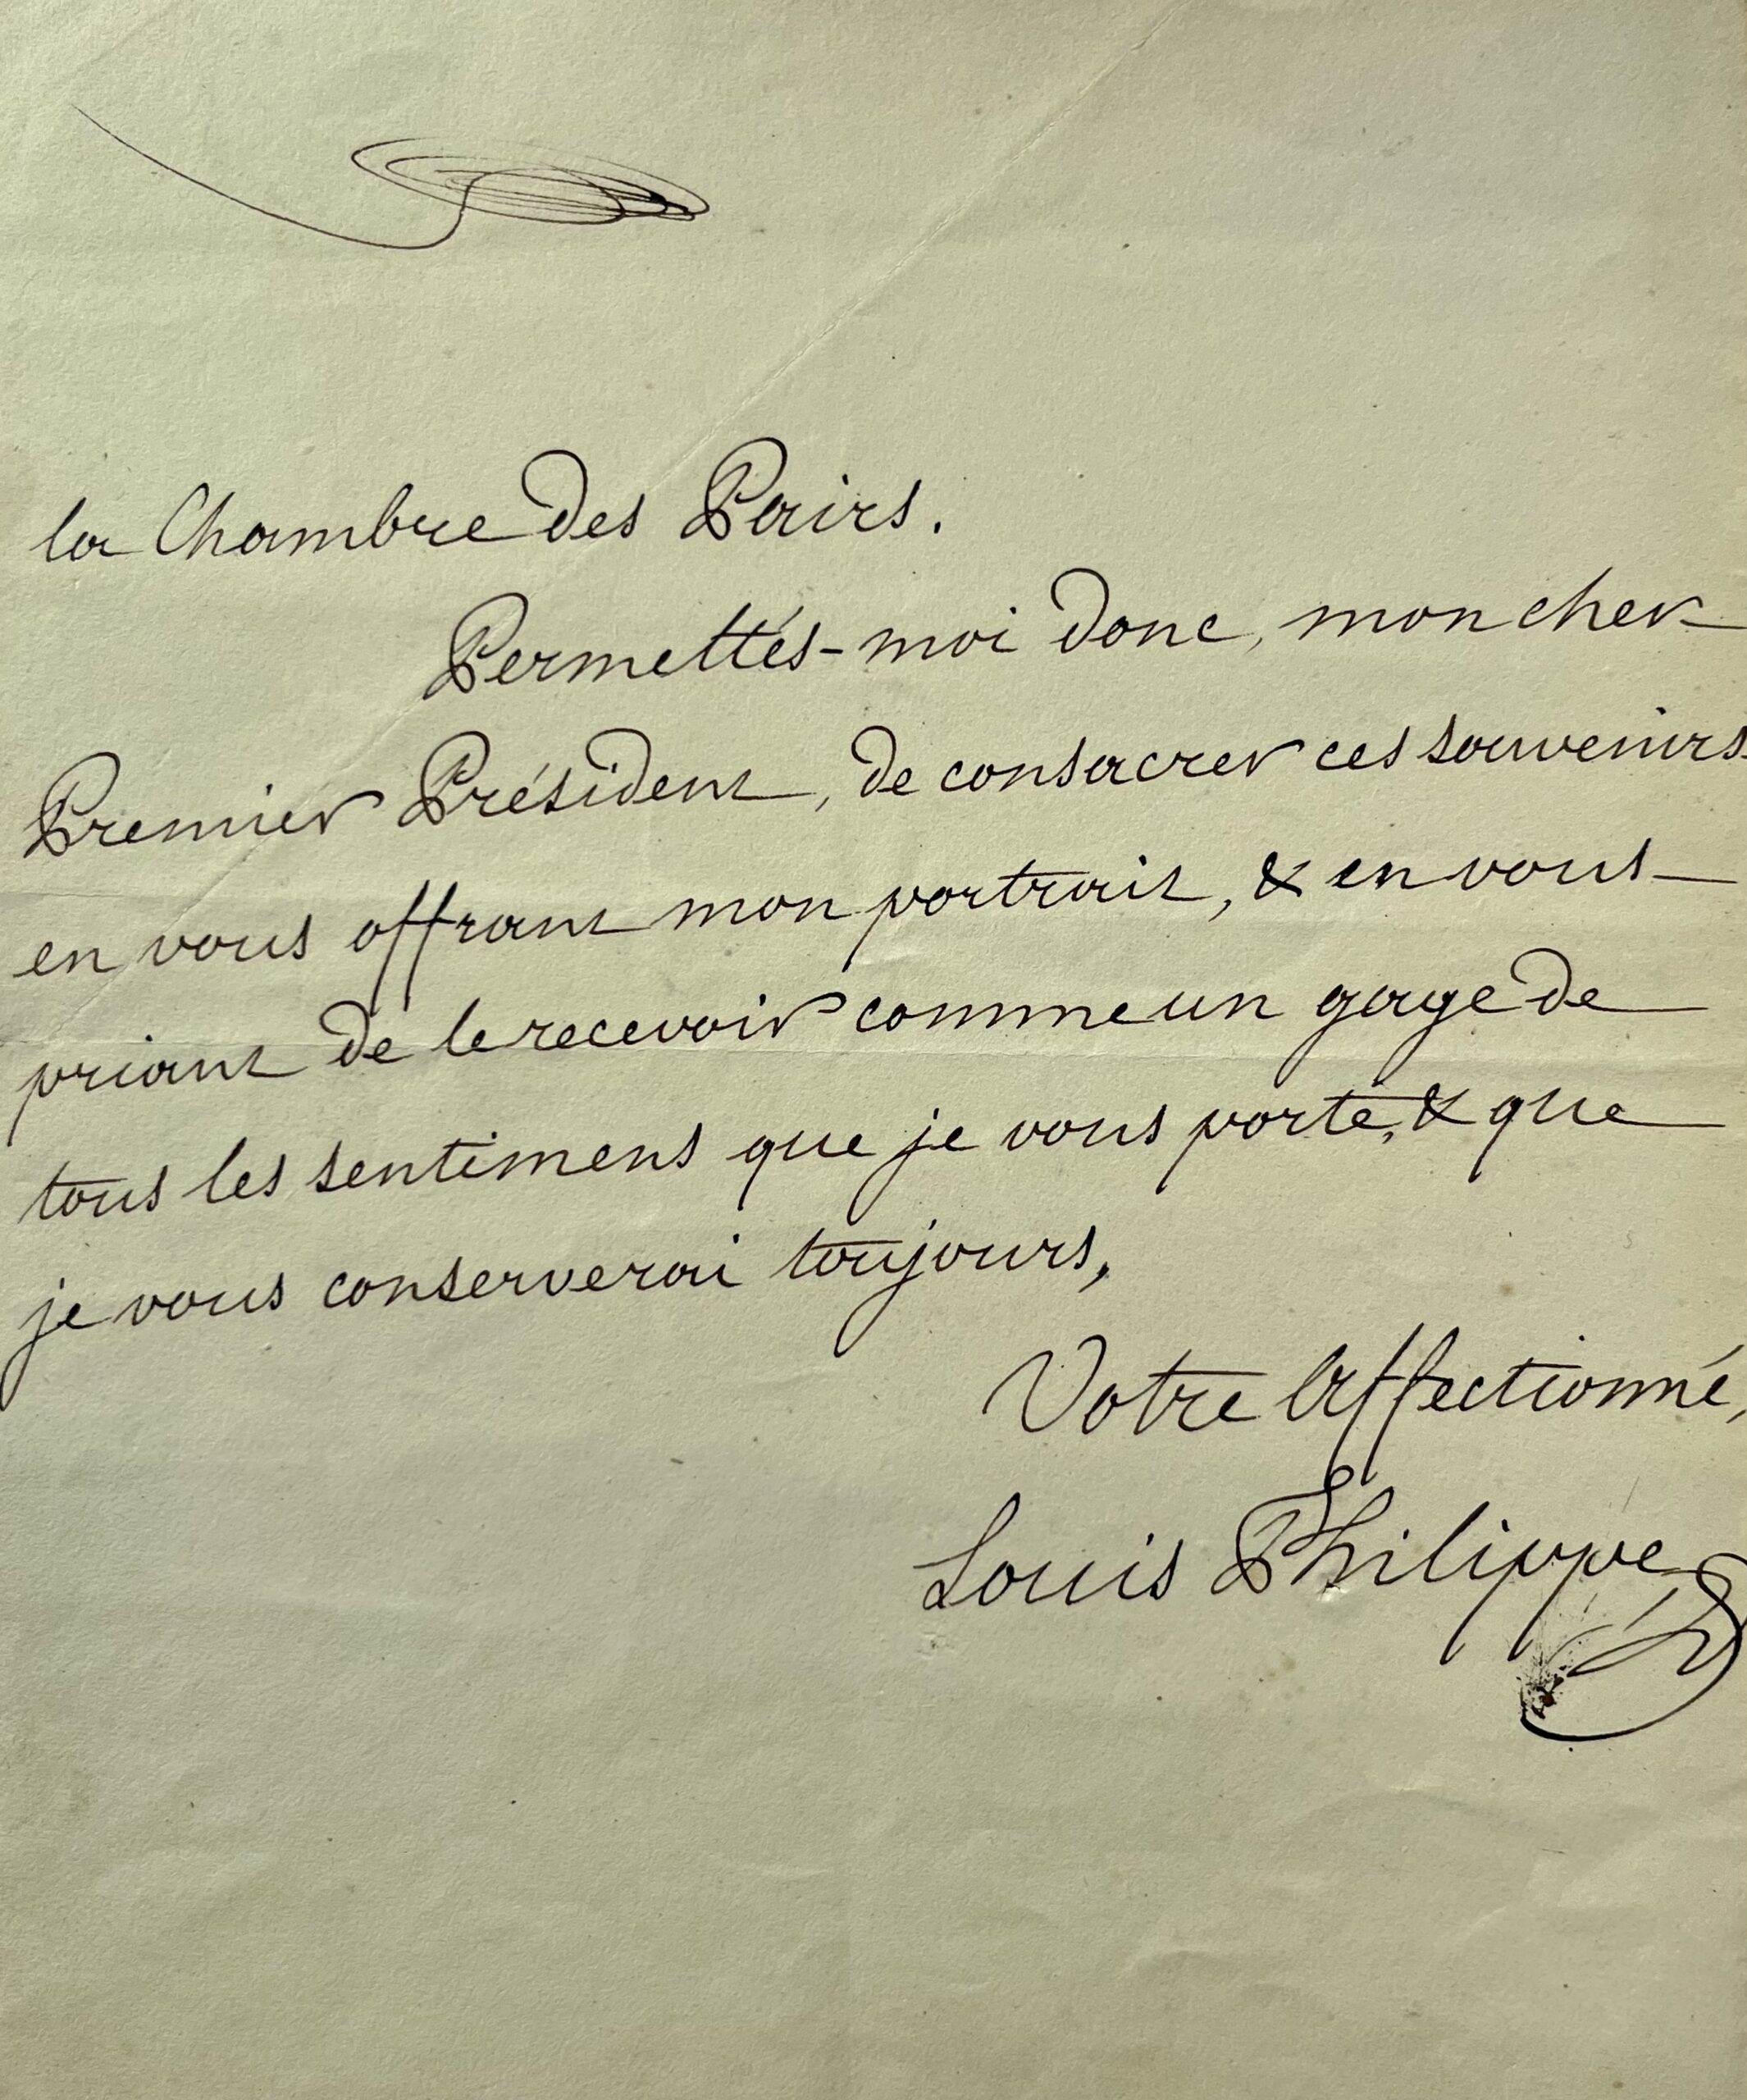 la Chambre des Pairs.
Permettés-moi donc, mon cher
Premier Président, de consacrer ces souvenirs
en vous offrant mon portrait, & en vous
priant de le recevoir comme un gage de
tous les sentimens que je vous porte, & que
je vous conserverai toujours,
Votre Affectionné,
Louis Philippe